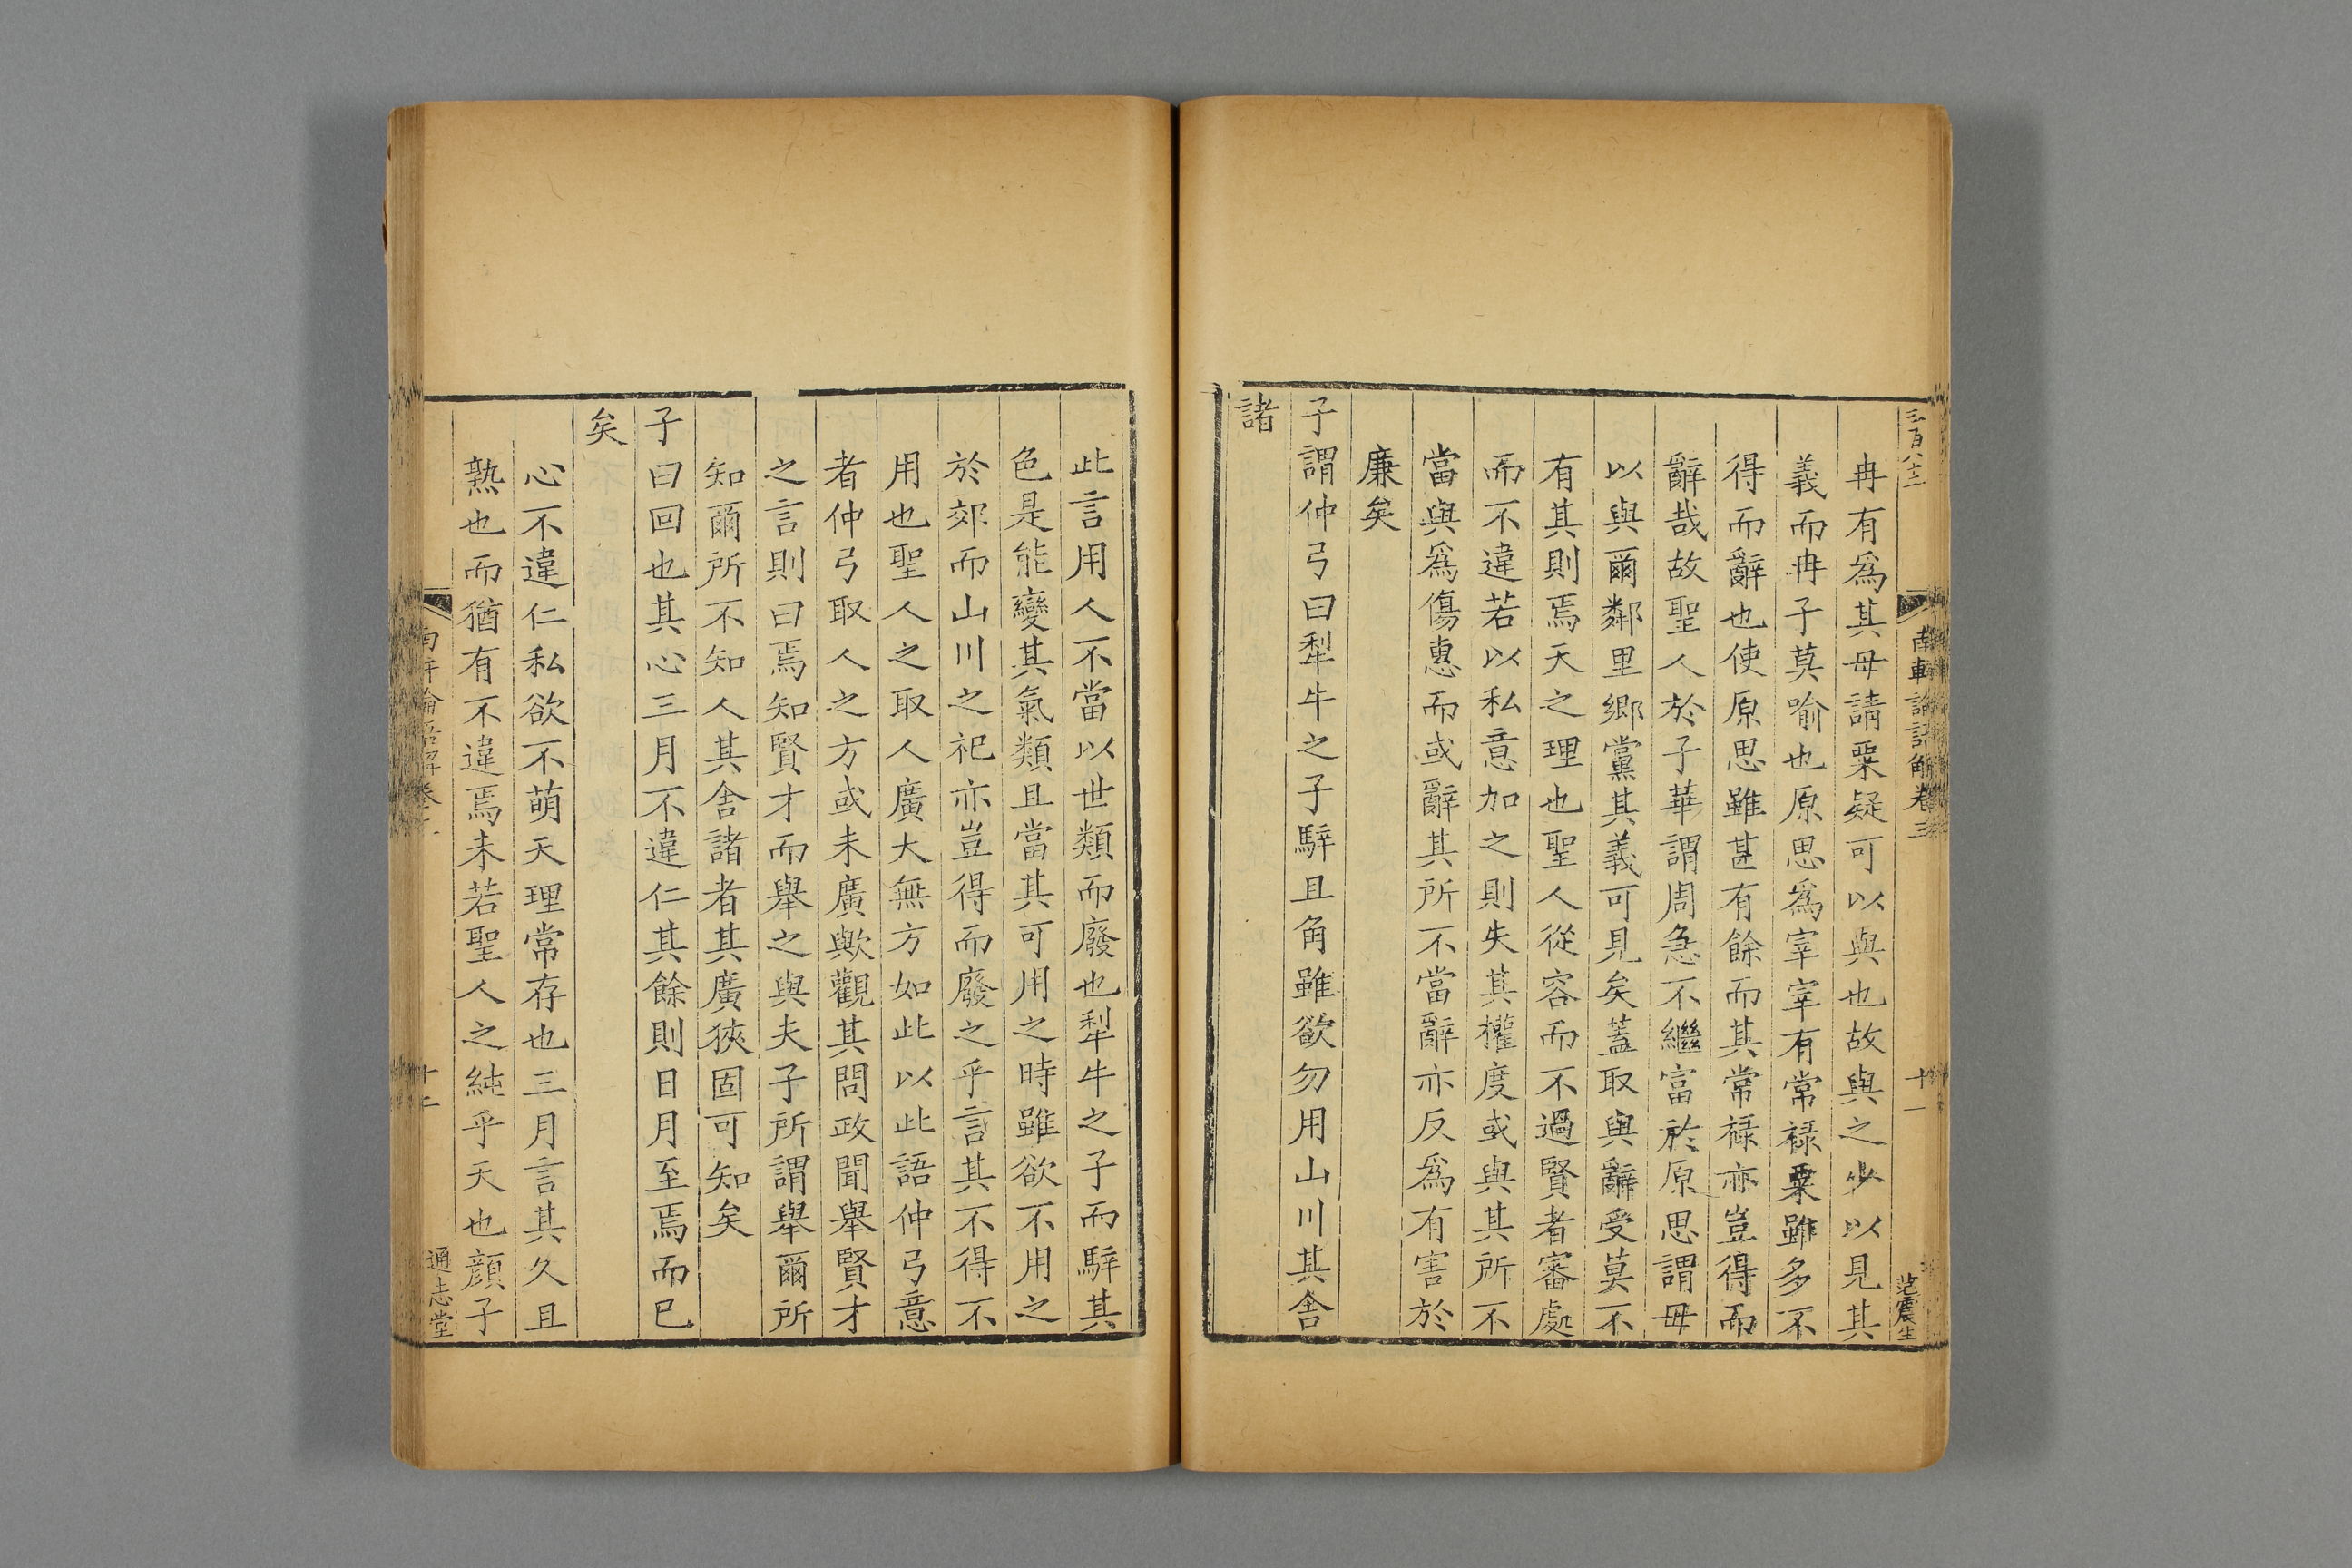 三百八十二
南軒論語解卷三
十一
范震生
冉有爲其母請粟疑可以與也故與之少以見其
義而冉子莫喻也原思爲宰宰有常祿粟雖多不
得而辭也使原思雖甚有餘而其常祿亦豈得而
辭哉故聖人於子華謂周急不繼富於原思謂毋
以與爾鄰里鄉黨其義可見矣蓋取與辭受莫不
有其則焉天之理也聖人從容而不過賢者審處
而不違若以私意加之則失其權度或與其所不
當與爲傷惠而或辭其所不當辭亦反爲有害於
廉矣
子謂仲弓曰犁牛之子騂且角雖欲勿用山川其舍
諸
此言用人不當以世類而廢也犁牛之子而騂其
色是能變其氣類且當其可用之時雖欲不用之
於郊而山川之祀亦豈得而廢之乎言其不得不
用也聖人之取人廣大無方如此以此語仲弓意
者仲弓取人之方或未廣歟觀其問政聞舉賢才
之言則曰焉知賢才而舉之與夫子所謂舉爾所
知爾所不知人其舍諸者其廣狹固可知矣
子曰回也其心三月不違仁其餘則日月至焉而已
矣
心不違仁私欲不萌天理常存也三月言其久且
熟也而猶有不違焉未若聖人之純乎天也顔子
南軒論語解卷三
十二
通志堂